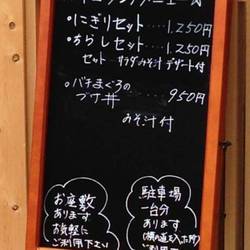 ・にぎりセット････1,250円
・ちらしセット････1,250円
セット サラダみそ汁 デザート付
・バチまぐろの
ブツ丼 ････ 950円
みそ汁付
お座敷
あります
お気軽に
ご利用下さい
駐車場
一台分
あります